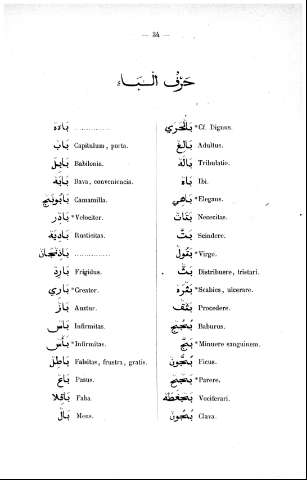 — 34 —
حَرْفُ الْبَاءِ
بَادَه ..............
بَاب Capitulum, porta.
بَابِل Babilonia.
بَابَة Bava, conveniencia.
بَابُونَج Camamilla.
بَادَر *Velocitor.
بَادِيَة Rusticitas.
بَاذِنْجَان ..............
بَارِد Frigidus.
بَارِي *Creator.
بَاز Austur.
بَاس Infirmitas.
بَأْس *Infirmitas.
بَاطِل Falsitas, frustra, gratis.
بَاع Passus.
بَاقِلَا Faba
بَال Mens.
بِالْحَرِي *Cf. Dignus.
بَالِغ Adultus.
Tribulatio.
Ibi.
بَاهِي *Elegans.
Necocitas.
بَتّ Scindere.
بَتُول *Virgo.
بَثّ Distribuere, tristari.
*Scabies, ulcerare.
Procedere.
Baburus.
*Minuere sanguinem.
Ficus.
*Parere.
Vociferari.
Clava.